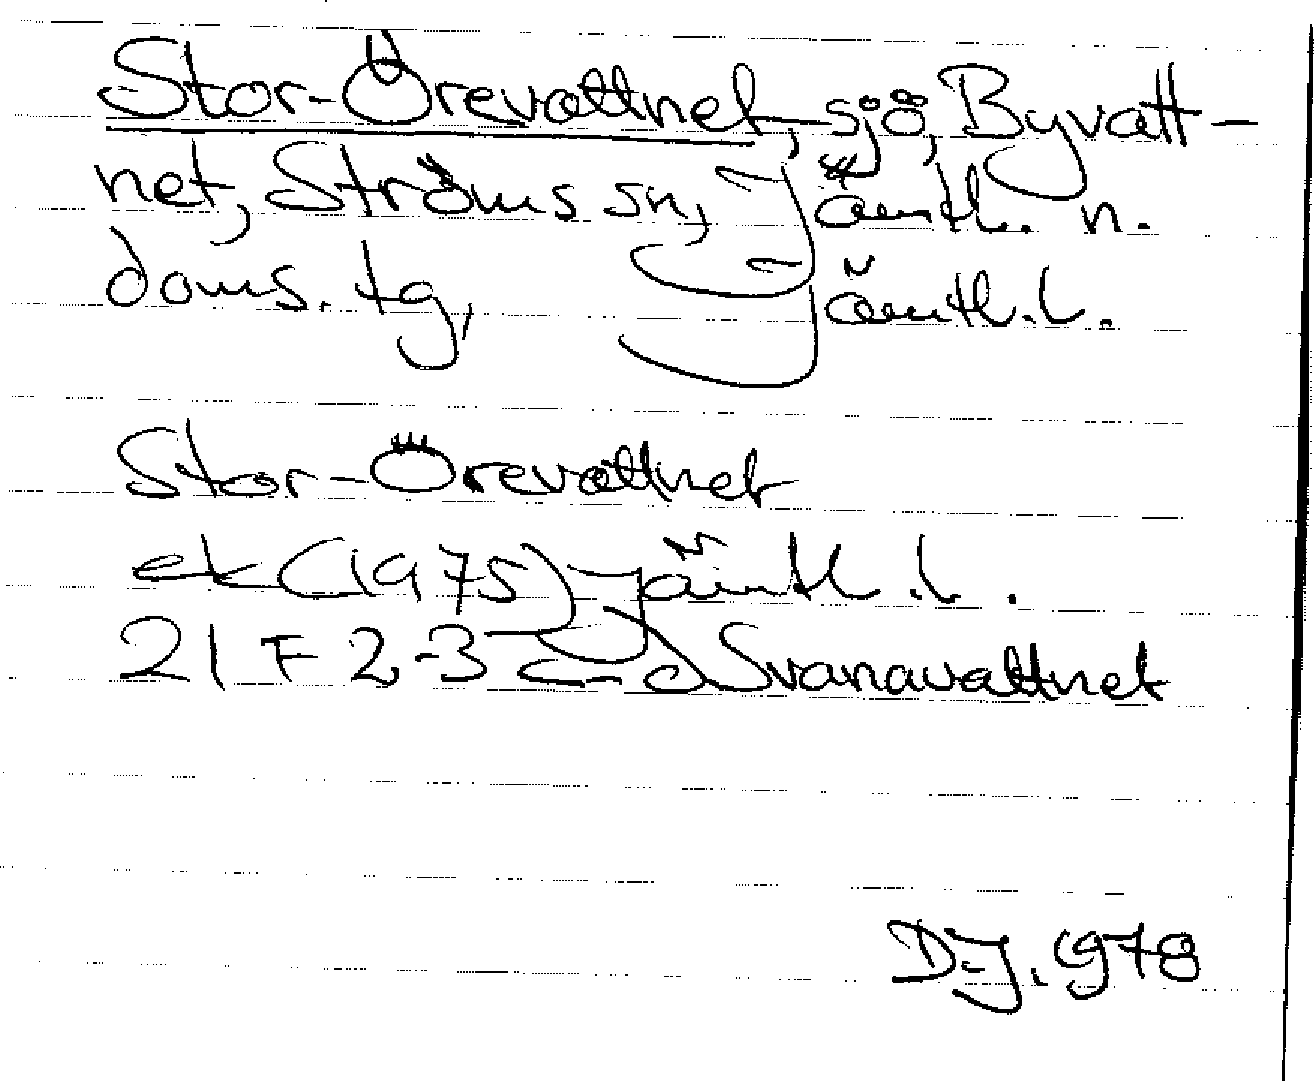 Stor-Örevattnet, sjö, Byvatt-
net, Ströms sn, Jämtl. n.
doms. tg, Jämtl. l.
Stor-Örevattnet
ek (1975) Jämtl. l.
21 F 2-3 c-d Svanavattnet
D-J. 1978